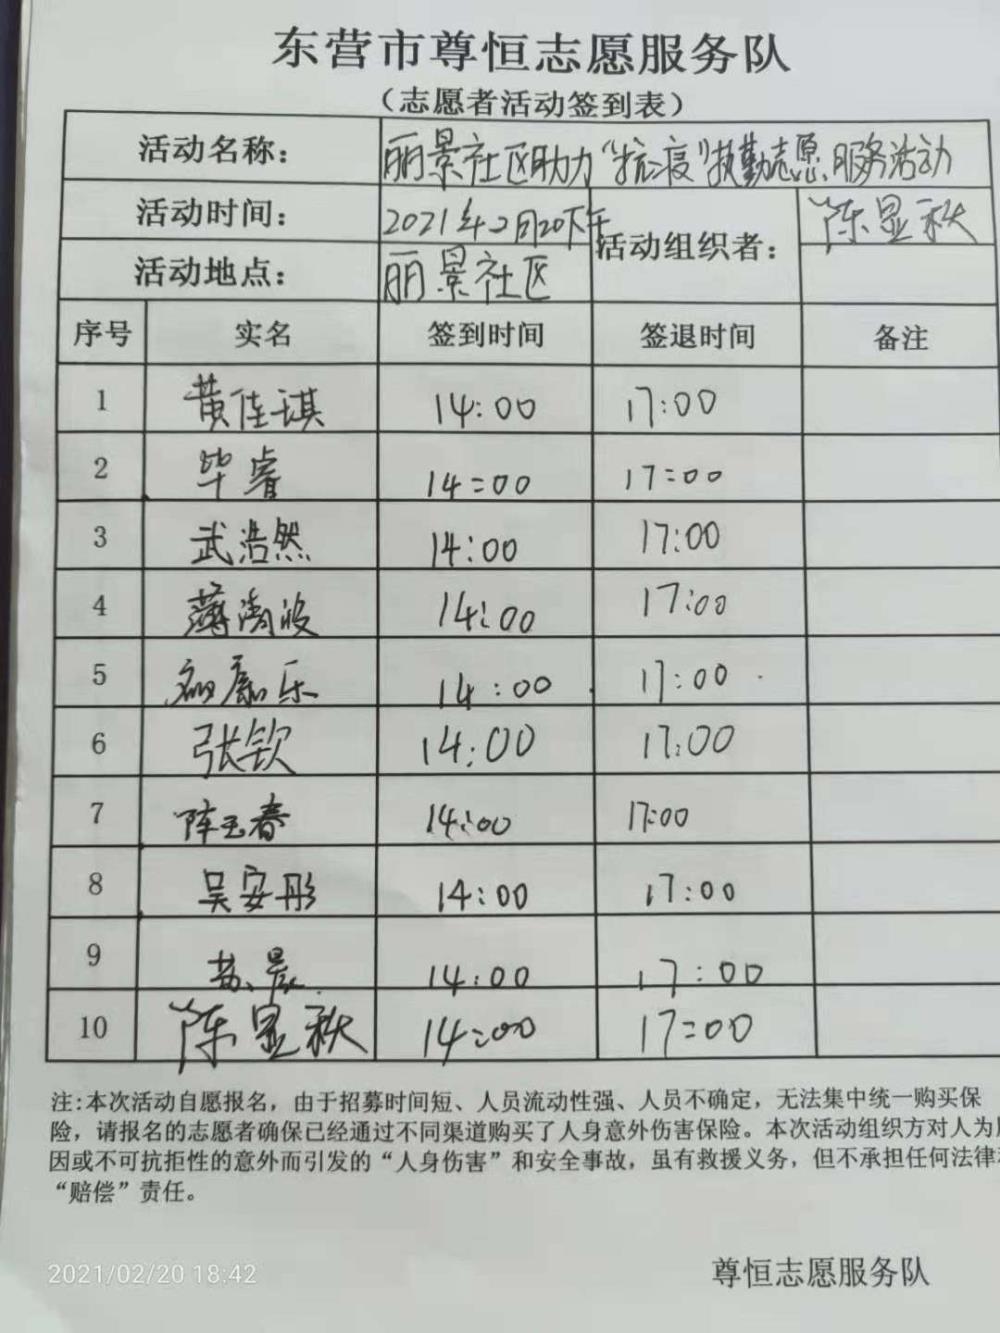 东营市尊恒志愿服务队
（志愿者活动签到表）
活动名称： 丽景社区助力“抗疫”执勤志愿服务活动
活动时间： 2021年2月20下午 活动组织者： 陈显秋
活动地点： 丽景社区
序号 实名 签到时间 签退时间 备注
1 黄佳琪 14:00 17:00
2 毕睿 14:00 17:00
3 武浩然 14:00 17:00
4 薄海波 14:00 17:00
5 康乐 14:00 17:00
6 张钦 14:00 17:00
7 陈玉春 14:00 17:00
8 吴安彤 14:00 17:00
9 苏晨 14:00 17:00
10 陈显秋 14:00 17:00
注:本次活动自愿报名，由于招募时间短、人员流动性强、人员不确定，无法集中统一购买保
险，请报名的志愿者确保已经通过不同渠道购买了人身意外伤害保险。本次活动组织方对人为
因或不可抗拒性的意外而引发的“人身伤害”和安全事故，虽有救援义务，但不承担任何法律
“赔偿”责任。
2021/02/20 18:42
尊恒志愿服务队